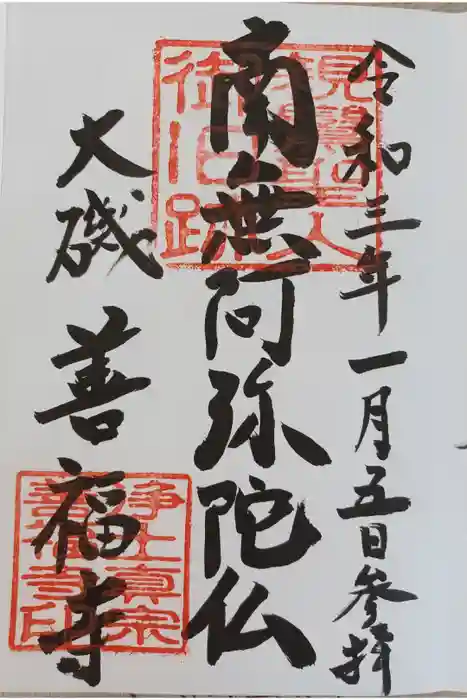 令和三年一月五日参拝
南無阿弥陀仏
大磯 善福寺
親鸞聖人
御旧跡
浄土真宗
善福寺印